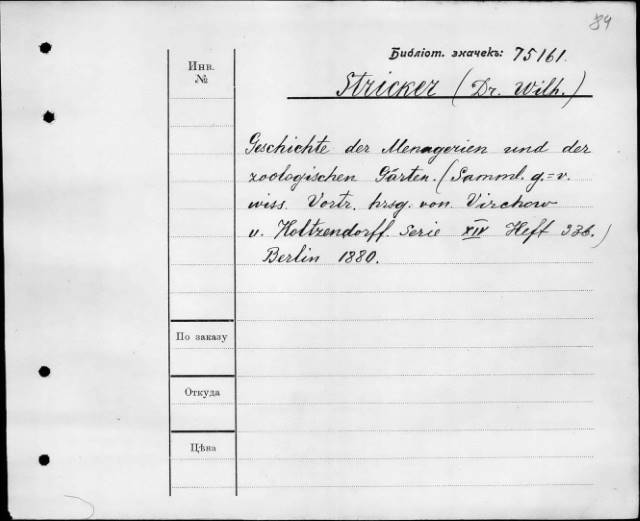 84
Библіот. значекъ: 75161.
Инв.
№
Stricker (Dr. Wilh.)
Geschichte der Menagerien und der
zoologischen Gärten. (Samml. g.=v.
wiss. Vortr. hrsg. von. Virchow
u. Holtzendorff. Serie XIV Heft 336.)
Berlin 1880.
По заказу
Откуда
Цѣна